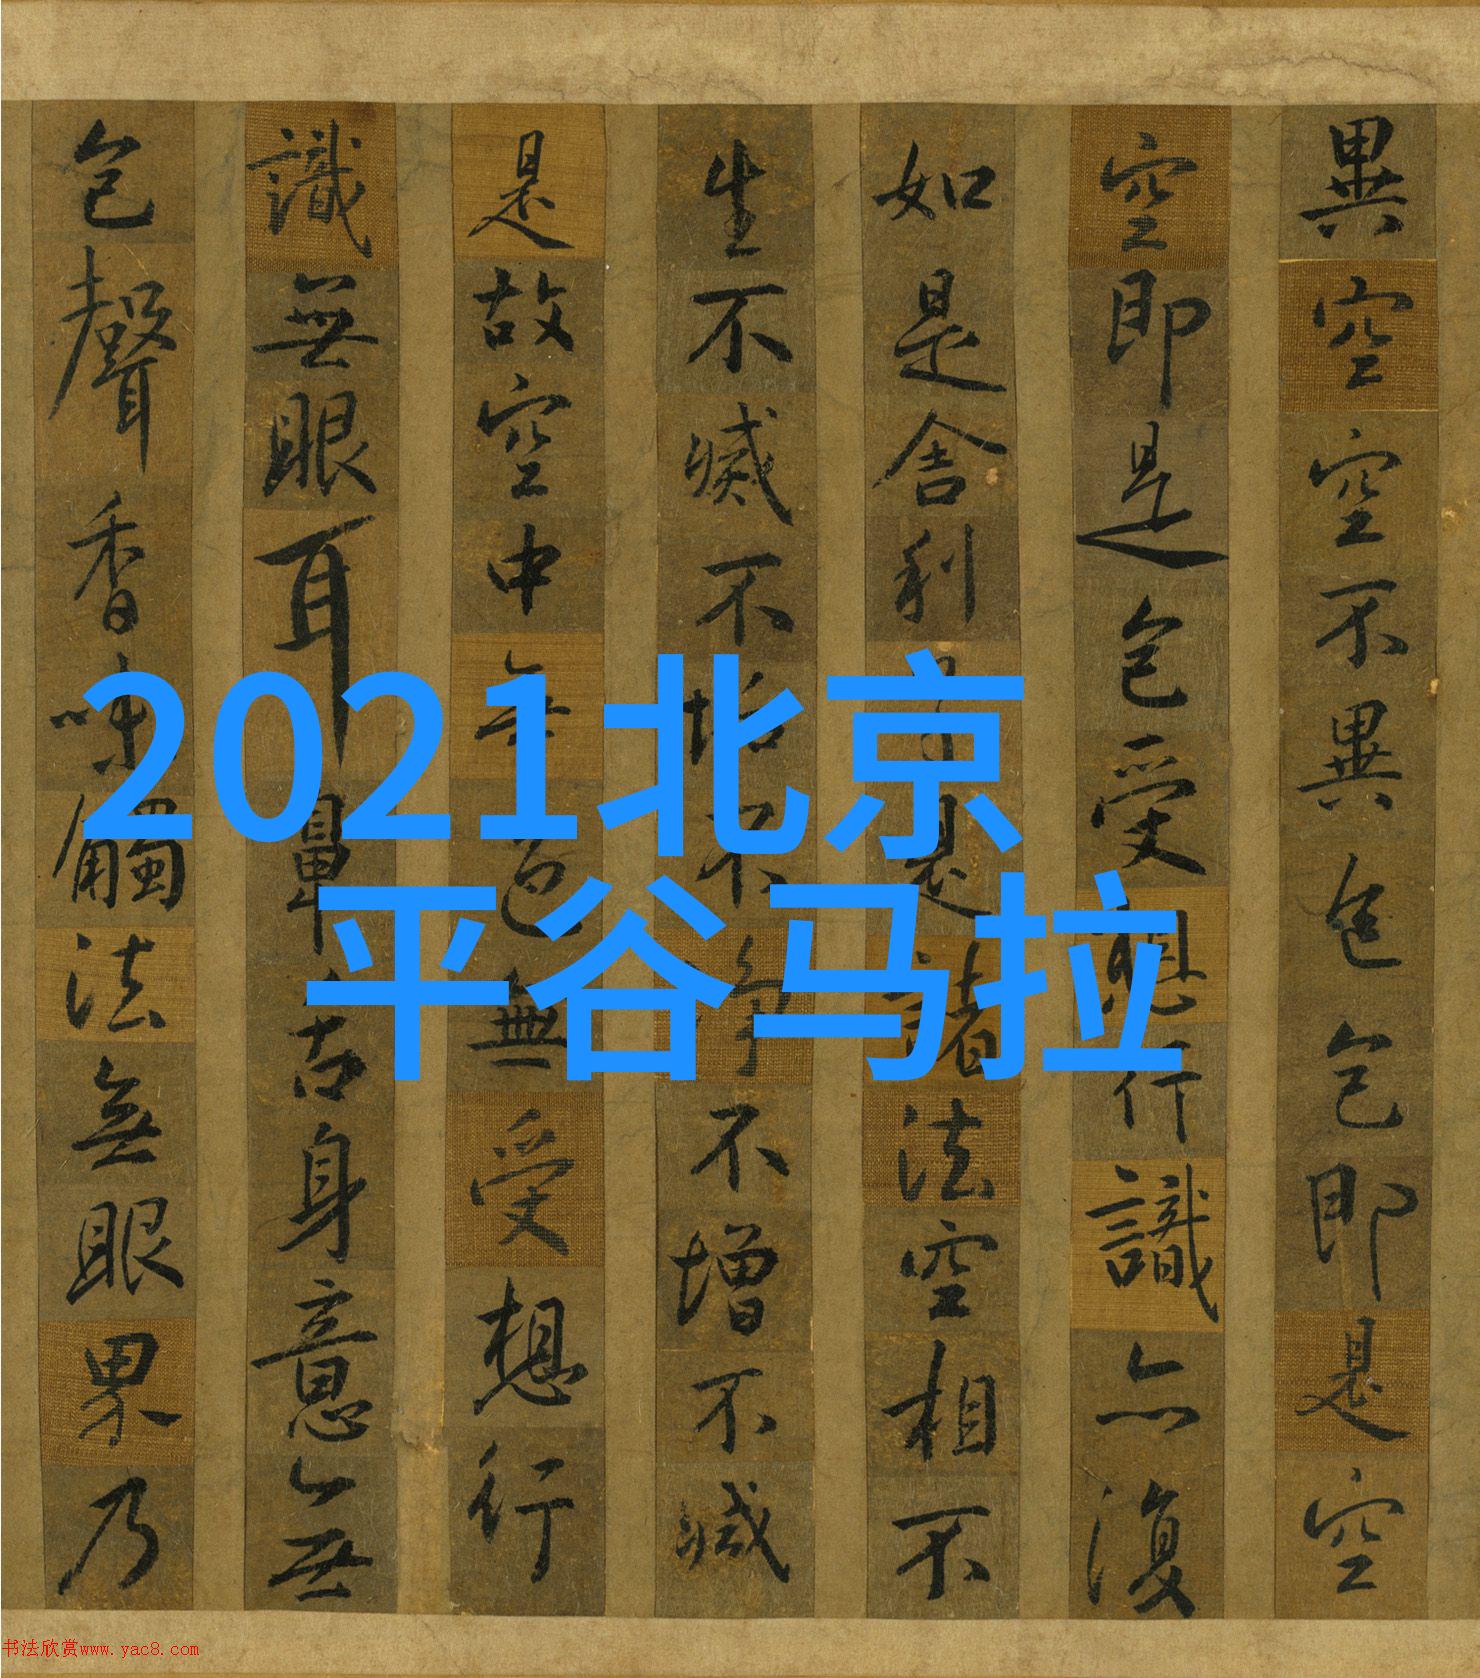 異空空不異色色即是空
空即是色受想行識亦復
如是舍利子是諸法空相不
生不滅不垢不淨不增不減
是故空中無色無受想行
識無眼耳鼻舌身意無
色聲香味觸法無眼界乃
2021北京
平谷马拉
书法欣赏www.yac8.com